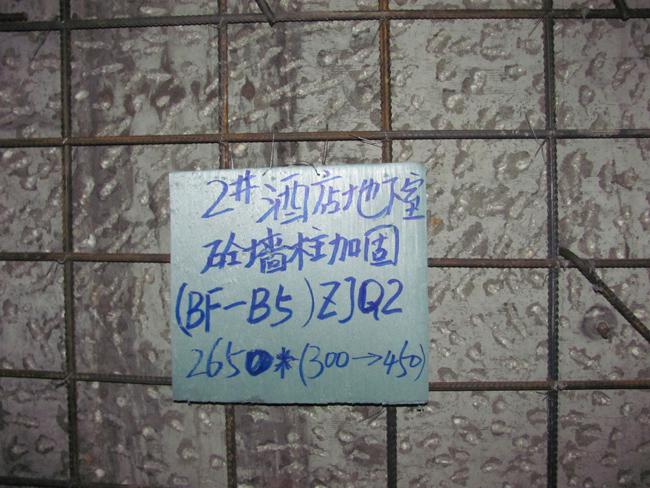 2# 酒店地下室
砼墙柱加固
(BF-B5)ZJQ2
2650*(300→450)